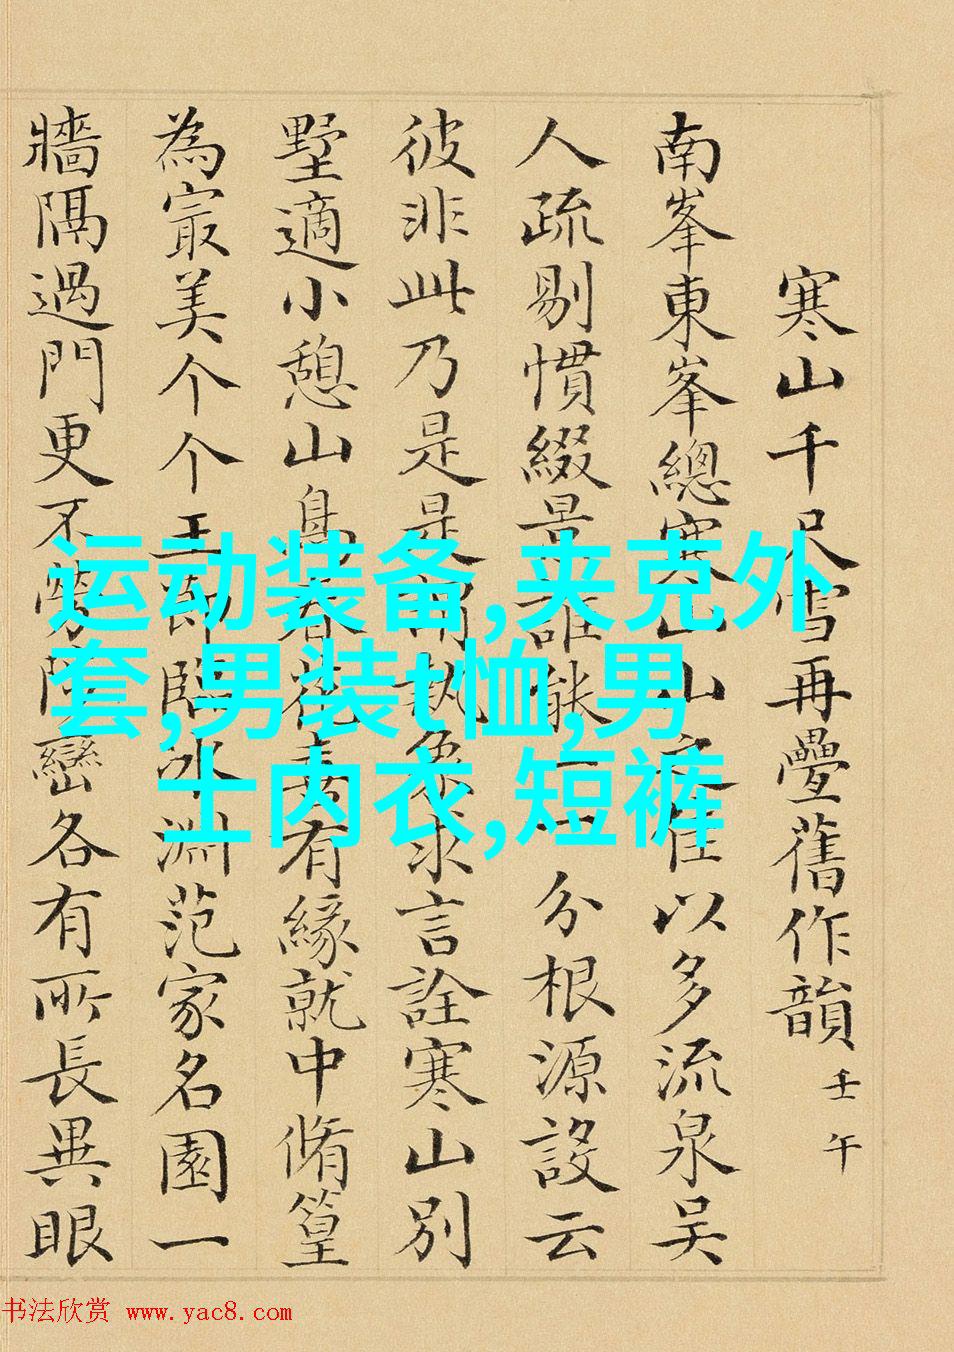 寒山千尺雪再疊舊作韻 壬午
南峯東峯總寒山山佳以多流泉吳
人疏剔慣綴景誰能一分根源設云
彼非此乃是是執象求言詮寒山別
墅適小憩山鳥春花有緣就中脩篁
為寂美个个玉節臨冰淵范家名園一
牆隔過門更不勞巒各有所長異眼
运动装备,夹克外
套,男装t恤,男
士内衣,短裤
书法欣赏 www.yac8.com